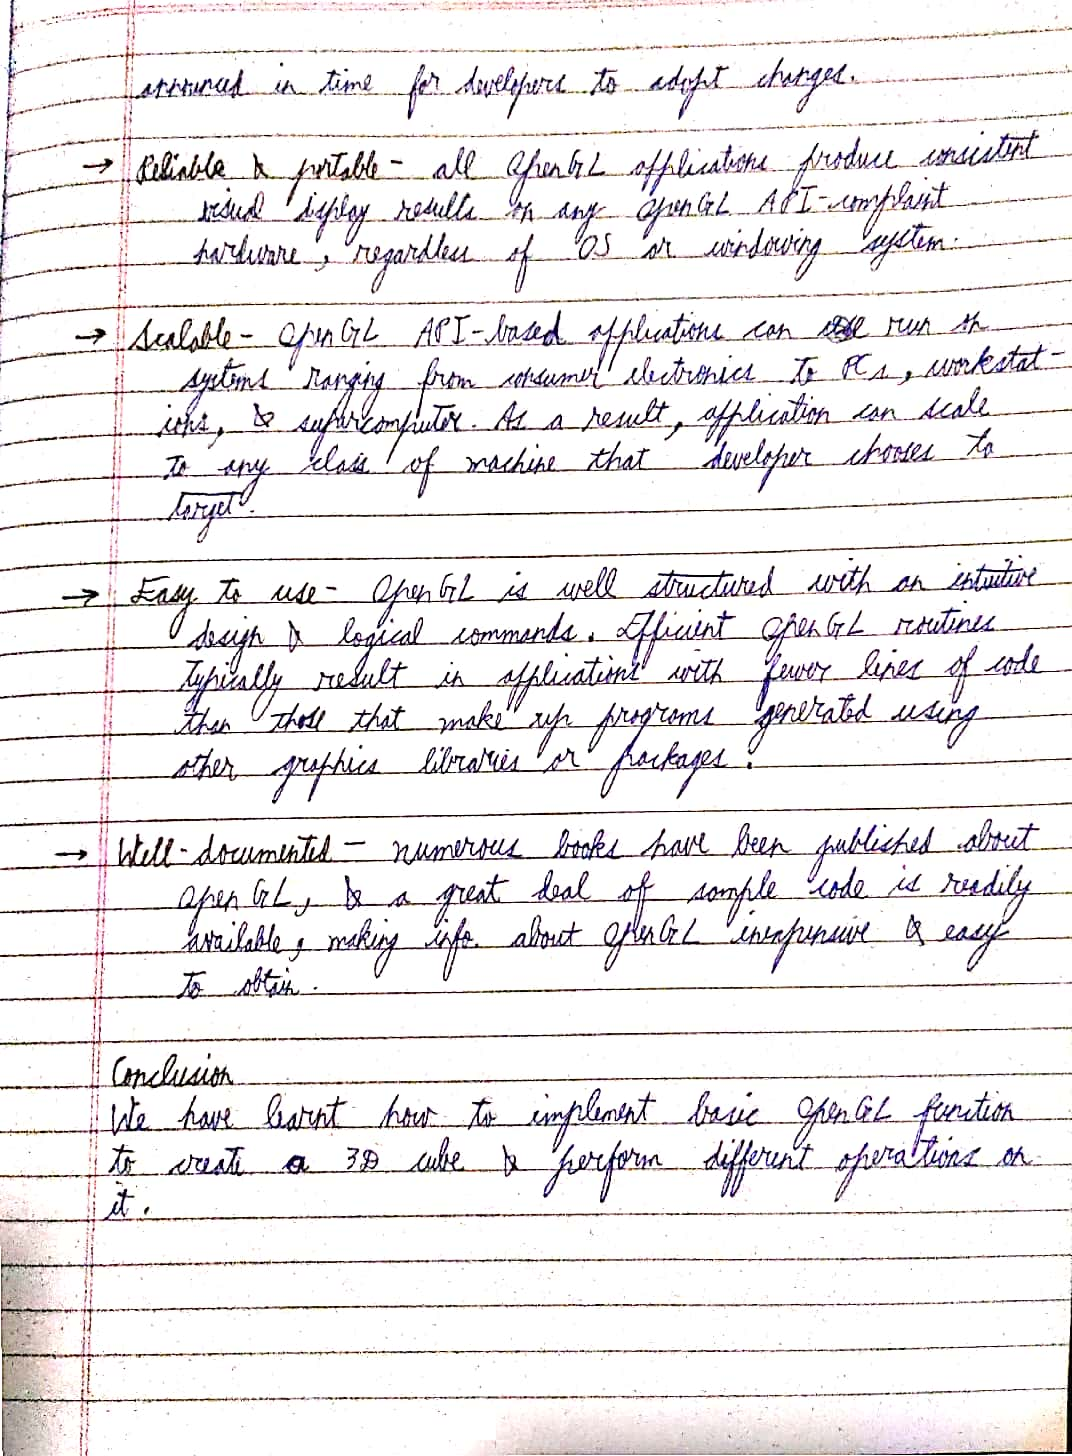 announced in time for developers to adopt changes.
→ Reliable & portable - all OpenGL applications produce consistent
visual display results on any OpenGL API-complaint
hardware, regardless of OS or windowing system.
→ Scalable - OpenGL API-based applications can run on
systems ranging from consumer electronics to PCs, workstat-
ions, & supercomputer. As a result, application can scale
to any class of machine that developer chooses to
target.
→ Easy to use - OpenGL is well structured with an intuitive
design & logical commands. Efficient OpenGL routines
typically result in applications with fewer lines of code
than those that make up programs generated using
other graphics libraries or packages.
→ Well-documented - numerous books have been published about
OpenGL, & a great deal of sample code is readily
available, making info. about OpenGL inexpensive & easy
to obtain.
Conclusion
We have learnt how to implement basic OpenGL function
to create a 3D cube & perform different operations on
it.